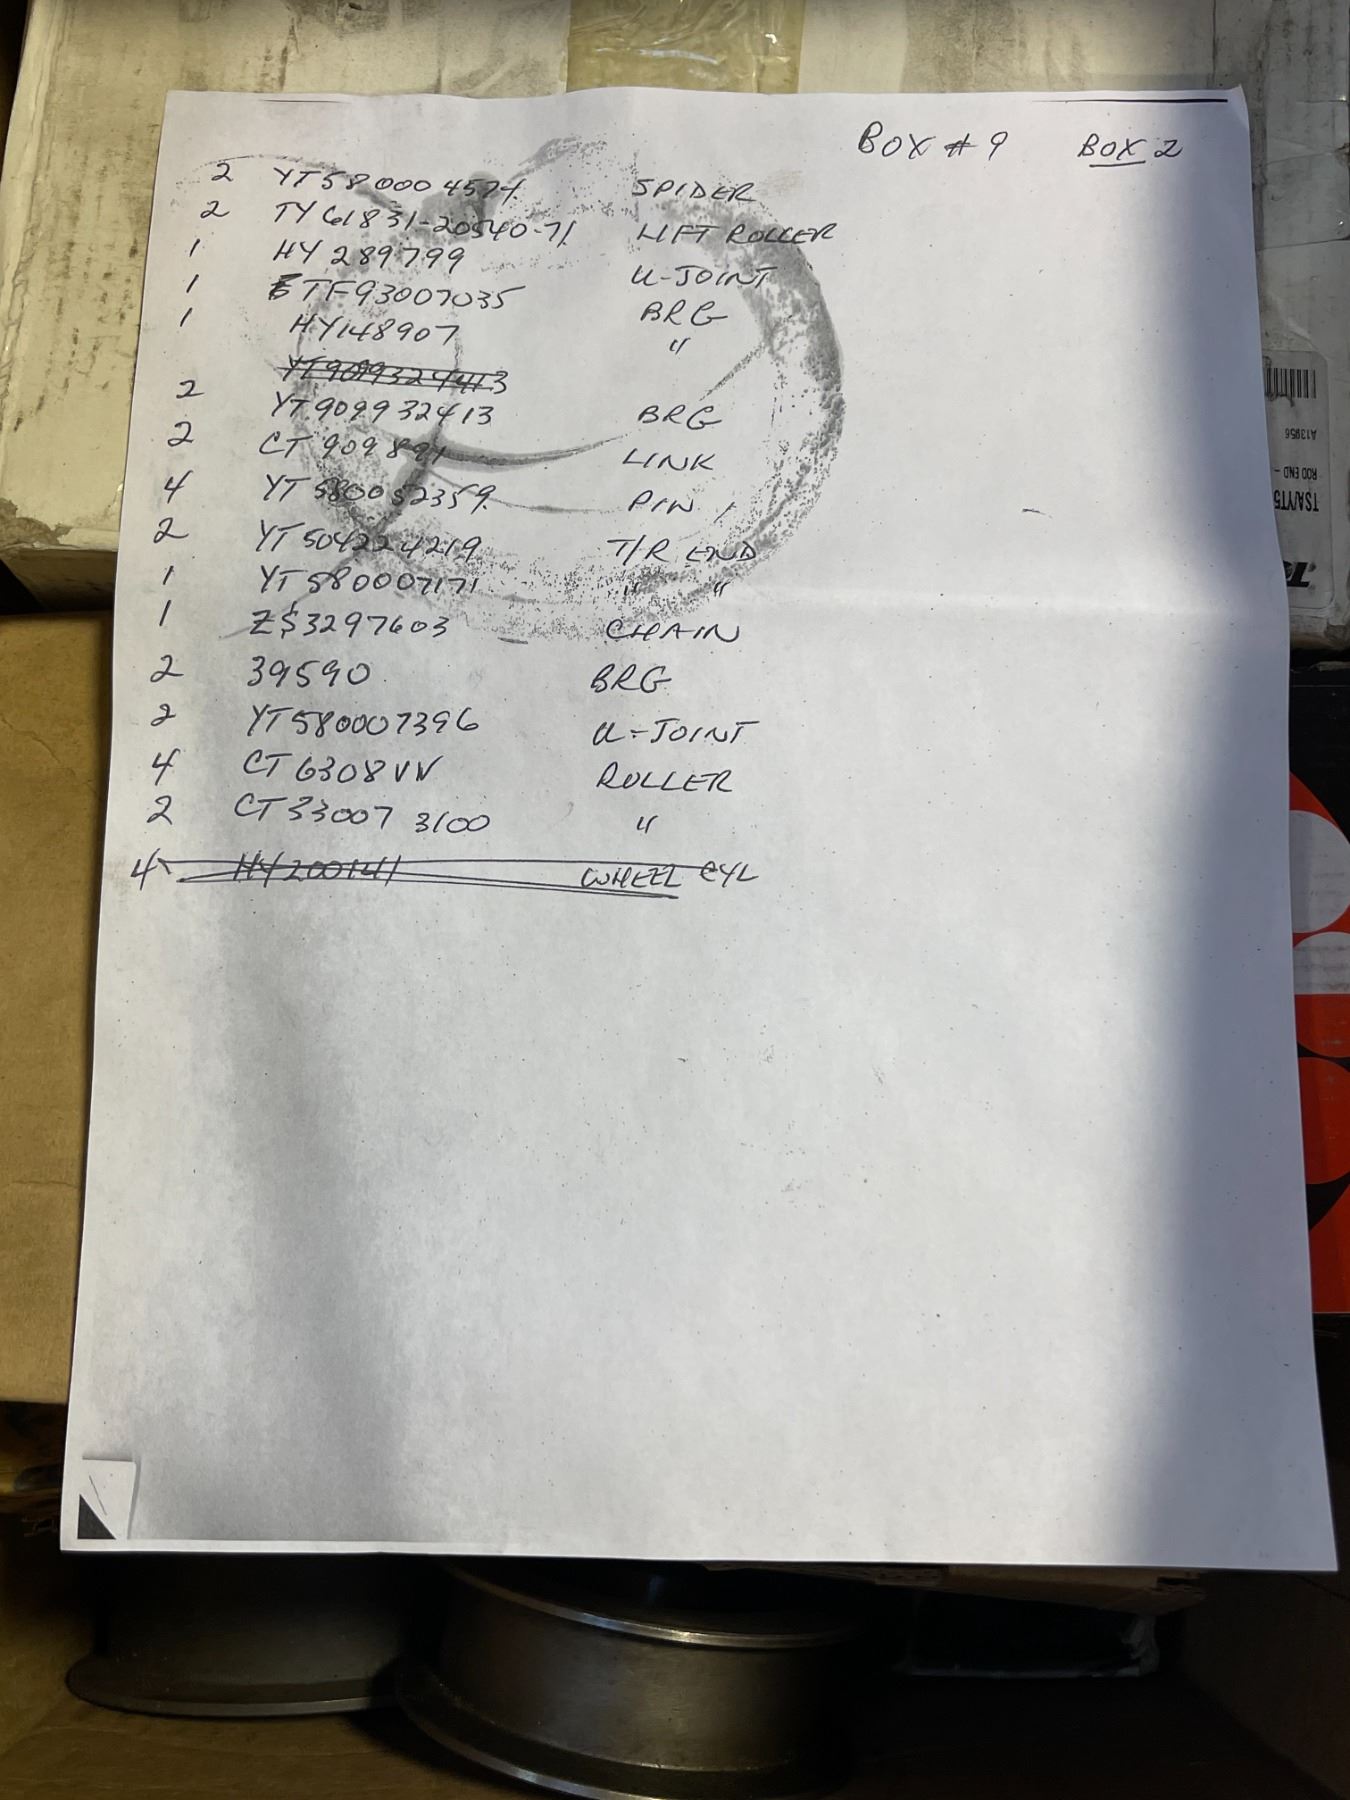 BOX # 9 BOX 2
2 YT580004574 SPIDER
2 TY61831-20540-71 LIFT ROLLER
1 HY 289799 U-JOINT
1 ETF93007035 BRG
1 HY148907 "
YT9099329413
2 YT909932413 BRG
2 CT 909891 LINK
4 YT 580052359 PIN
2 YT 504224219 T/R END
1 YT 580007171 " "
1 Z$3297603 CHAIN
2 39590 BRG
2 YT580007396 U-JOINT
4 CT 6308VV ROLLER
2 CT33007 3100 "
4 HY200141 WHEEL CYL
A13956
ROD END -
TSA/YT5